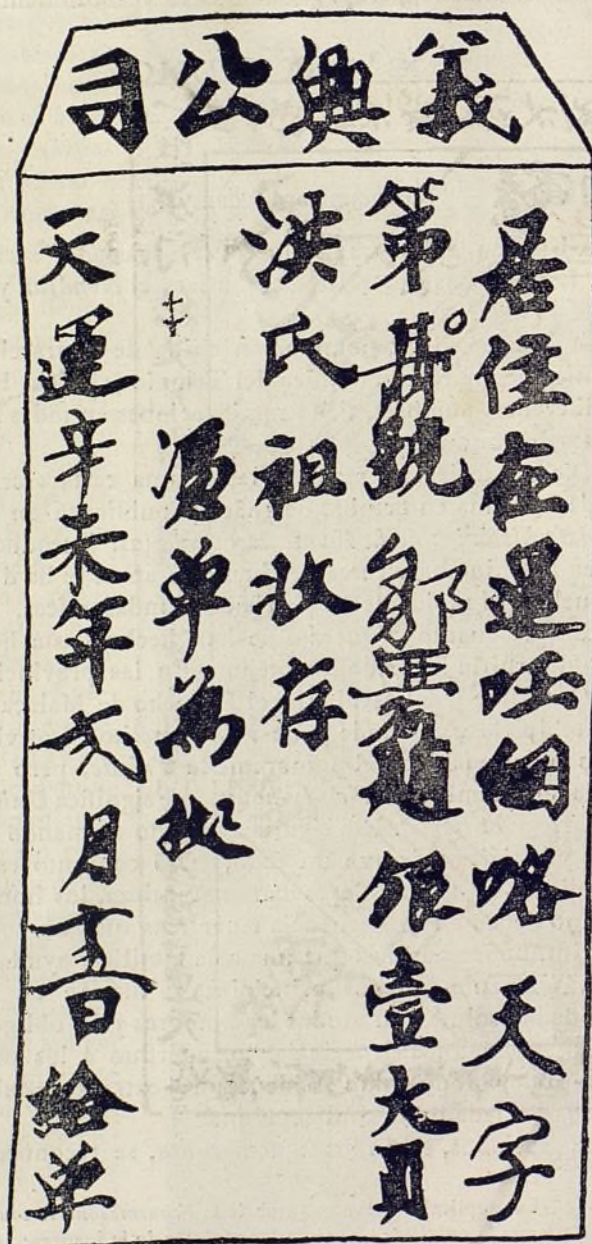 義興公司
居住在暹呸個咯天字
第廿號鄒亞超銀壹大員
洪氏祖收存
憑单為挑
天運辛未年弍月言日給单